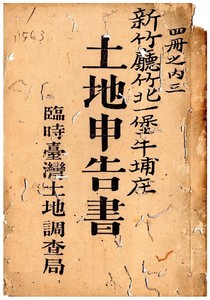 四冊之内三
新竹廳竹北一堡牛埔庄
土地申告書
臨時臺灣土地調査局